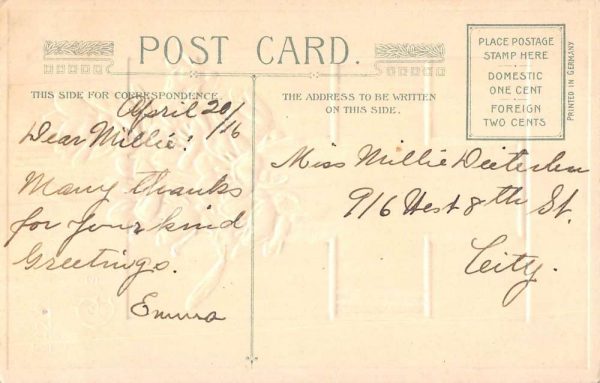 POST CARD.
PLACE POSTAGE
STAMP HERE
DOMESTIC
ONE CENT
FOREIGN
TWO CENTS
PRINTED IN GERMANY
THIS SIDE FOR CORRESPONDENCE.
THE ADDRESS TO BE WRITTEN
ON THIS SIDE.
April 20/16
Dear Millie!
Many thanks
for your kind
Greetings.
Emma
Miss Millie
916 West 8th St.
City.